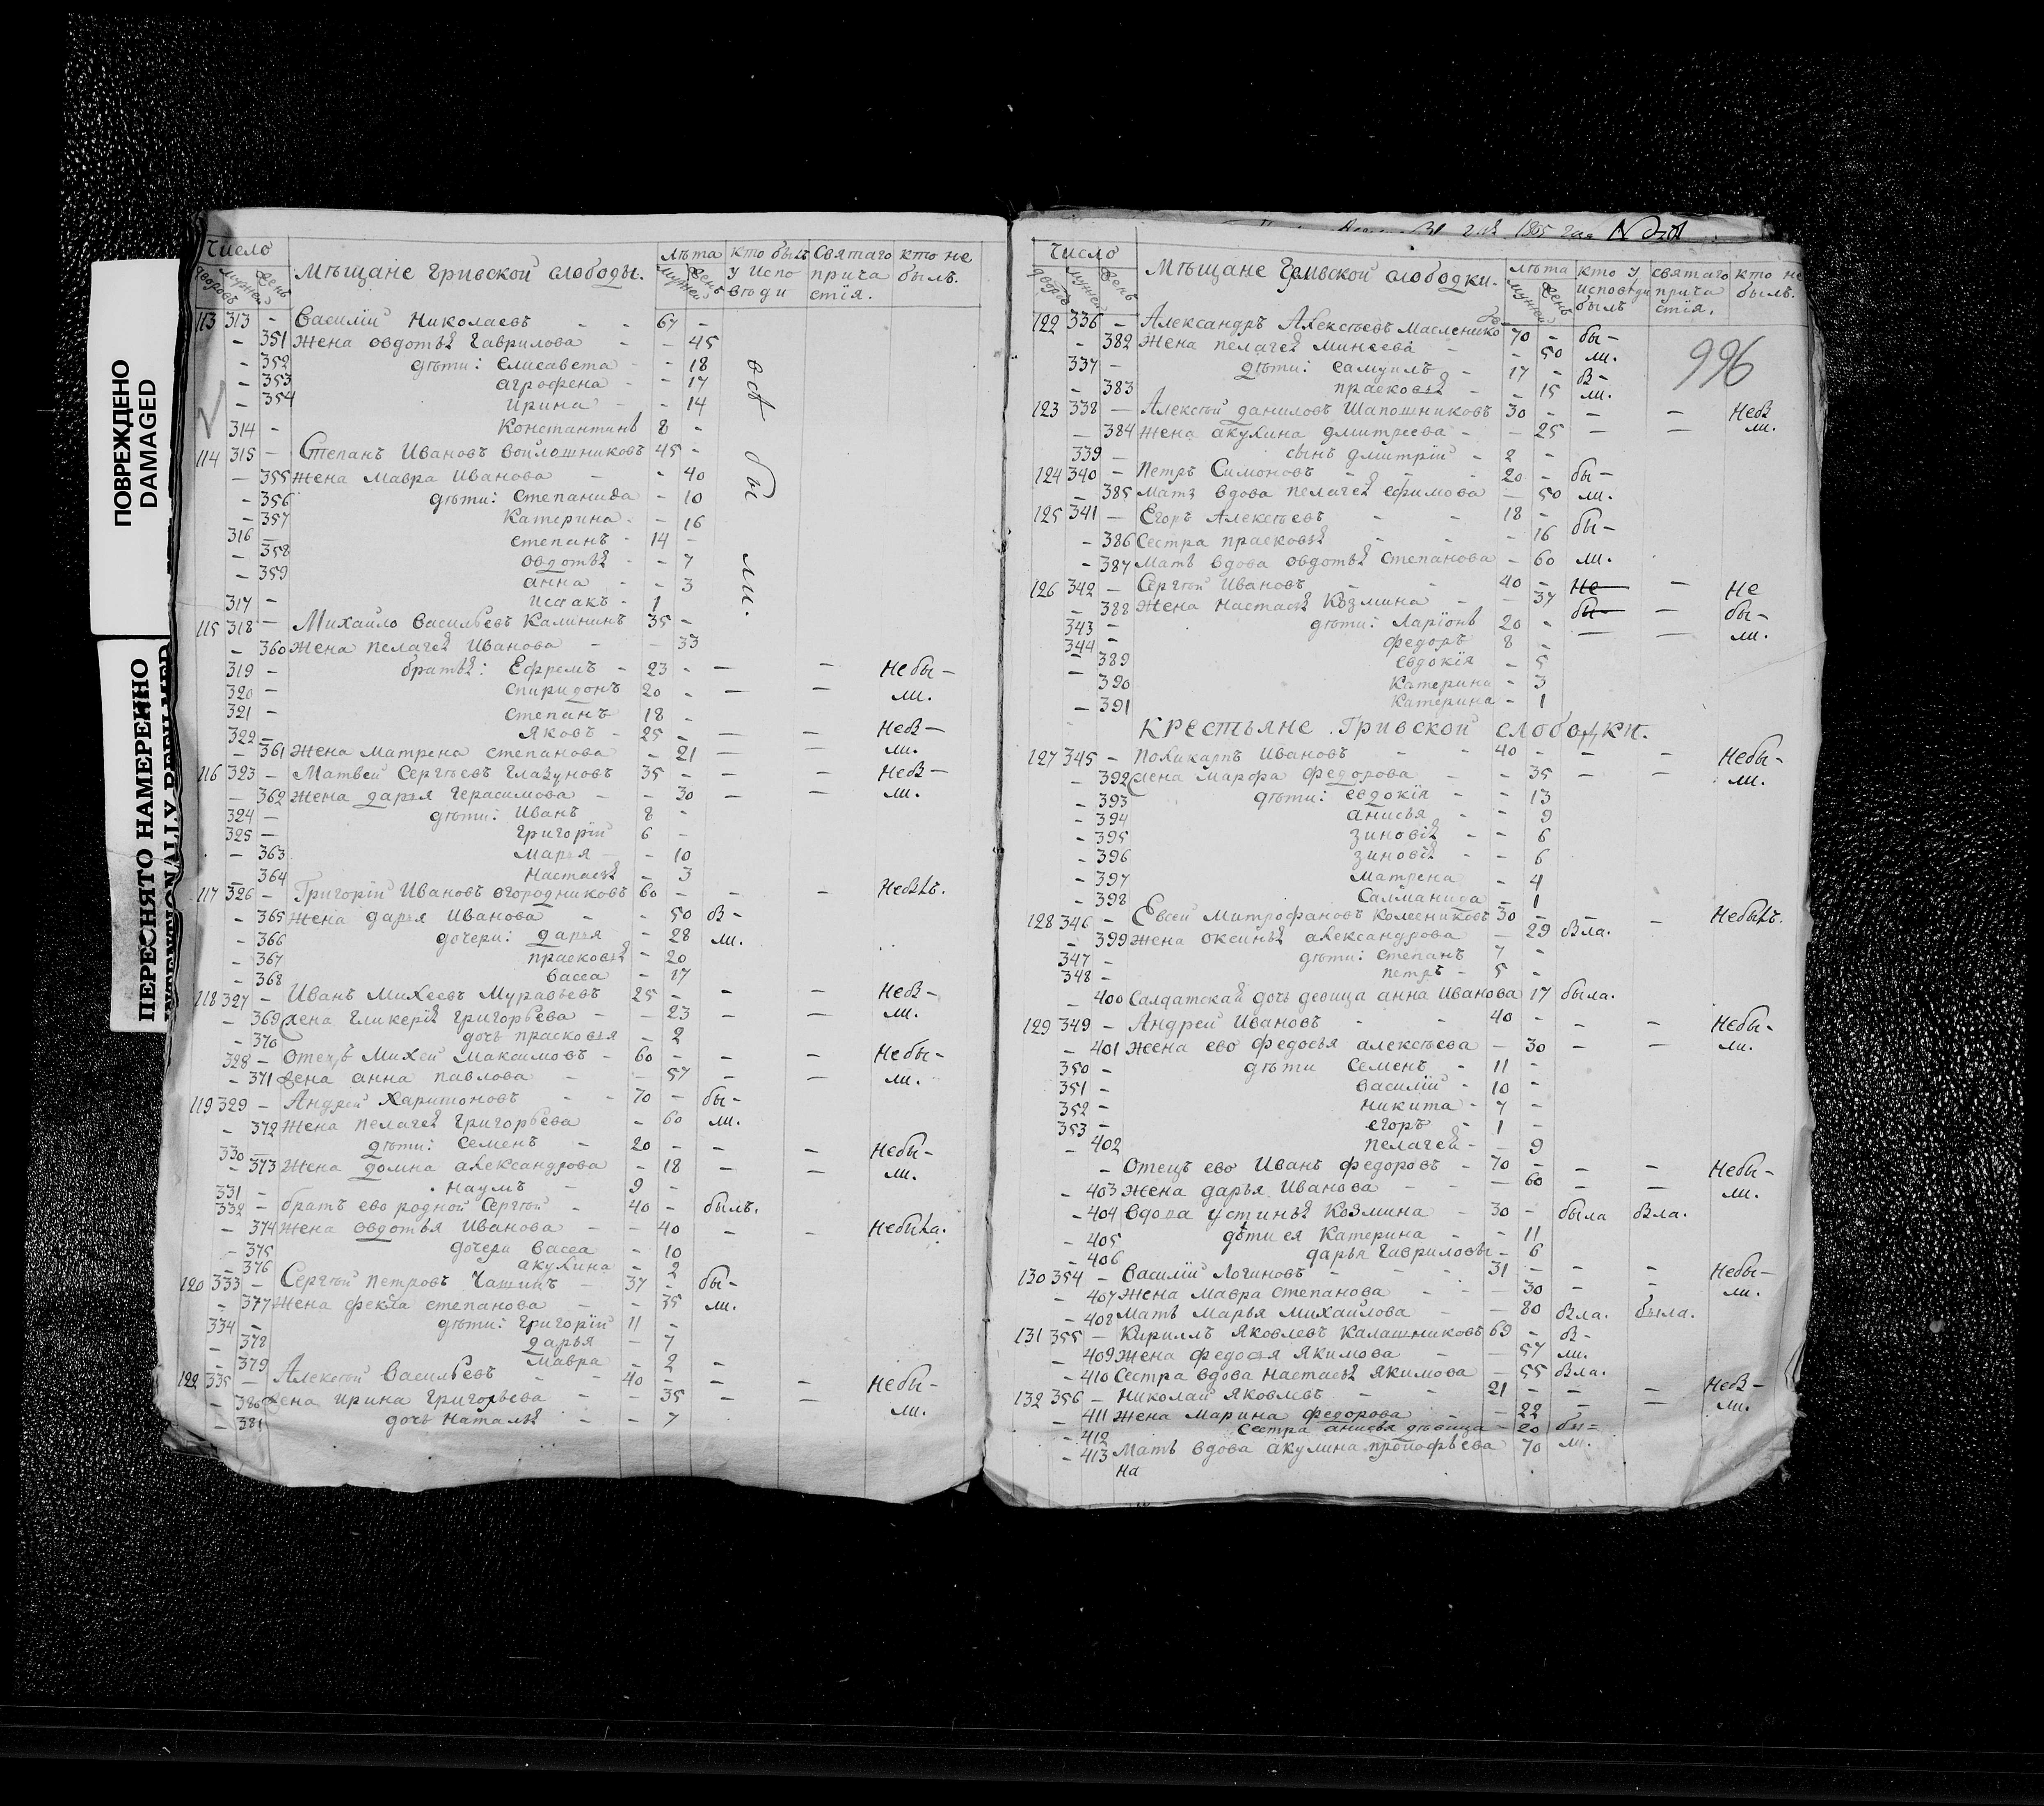 ПОВРЕЖДЕНО
DAMAGED
ПЕРЕСНЯТО НАМЕРЕННО
Число
дворовъ мужей женъ
Мѣщане Гривской слободы.
лѣта
мужей женъ
кто былъ у исповѣди
Святаго причастїя.
кто не былъ.
113 313 - Василїй Николаевъ - - 67 -
- 351 Жена Овдотья Гаврилова - - 45
- 352 дѣти: Елисавета - - 18
- 353 агрофена - - 17
- 354 Ирина - - 14
314 - Константинъ 8 -
114 315 - Степанъ Ивановъ Войлошниковъ 45 -
- 355 Жена Мавра Иванова - - 40
- 356 дѣти: Степанида - 10
- 357 Катерина - - 16
316 - степанъ - 14 -
- 358 овдотья - - 7
- 359 анна - - 3
317 - Исаакъ - 1
всѣ были.
115 318 - Михайло Васильевъ Калининъ 35 -
- 360 Жена Пелагея Иванова - - 33
319 - братья: Ефремъ - 23 - - - Небы-
320 - спиридонъ 20 - - - ли.
321 - степанъ 18 -
322 - Яковъ - 25 - - - Небы-
- 361 Жена Матрена степанова - 21 - - ли.
116 323 - Матвей Сергѣевъ Глазуновъ 35 - - - Небы-
- 362 Жена дарья Герасимова - - 30 - - ли.
324 - дѣти: Иванъ 8 -
325 - Григорїй 6 -
- 363 Марья - - 10
- 364 Настасья - 3
117 326 - Григорїй Ивановъ Огородниковъ 60 - - - Небылъ.
- 365 Жена дарья Иванова - - 50 бы-
- 366 дочери: дарья - 28 ли.
- 367 прасковья - 20
- 368 васса - 17
118 327 - Иванъ Михеевъ Муравьевъ 25 - - - Небы-
- 369 Жена Гликерїя Григорьева - - 23 - - ли.
- 370 дочь прасковья - 2
328 - Отецъ Михей Максимовъ - 60 - - - Небы-
- 371 Жена анна павлова - - 57 - - ли.
119 329 - Андрей Харитоновъ - - 70 - бы-
- 372 Жена пелагея Григорьева - 60 ли.
330 - дѣти: Семенъ - 20 - - - Небы-
- 373 Жена домна александрова - 18 - - ли.
331 - Наумъ - 9 -
332 - братъ ево родной Сергѣй - 40 - былъ.
- 374 Жена овдотья Иванова - - 40 - - Небыла.
- 375 дочери васса - 10
- 376 акулина - 2
120 333 - Сергѣй Петровъ Чашинъ - 37 - бы-
- 377 Жена фекла степанова - - 35 ли.
334 - дѣти: Григорїй 11 -
- 378 дарья - 7
- 379 мавра - 2 -
122 335 - Алексѣй Васильевъ - - 40 - - - Небы-
- 380 Жена ирина Григорьева - - 35 - - ли.
- 381 дочь Наталья - - 7
Число
дворовъ мужей женъ
Мѣщане Гривской слободки.
лѣта
мужей женъ
кто у исповѣди былъ
святаго причастїя.
кто не былъ.
996
122 336 - Александръ Алексѣевъ Масленико 70 - бы-
- 382 Жена пелагея Минеева - - 50 ли.
337 - дѣти: самуилъ - 17 - бы-
- 383 прасковья - 15 ли.
123 338 - Алексѣй даниловъ Шапошниковъ 30 - - - Небы
- 384 Жена акулина дмитреева - - 25 - - ли.
339 - сынъ дмитрїй - 2 -
124 340 - Петръ Симоновъ - - 20 - бы-
- 385 Мать вдова пелагея ефимова - 50 ли.
125 341 - Егоръ Алексѣевъ - - 18 - бы-
- 386 Сестра прасковья - - - 16
- 387 Мать вдова овдотья степанова - 60 ли.
126 342 - Сергѣй Ивановъ - - 40 - Не - Не
- 388 Жена Настасья Козмина - - 37 бы- - бы-
343 - дѣти: Ларїонъ 20 - - - ли.
344 - федоръ 8 -
- 389 евдокїя - 5
- 390 катерина - 3
- 391 катерина - 1
КРЕСТЬЯНЕ Гривской СЛОБОДКИ.
127 345 - Поликарпъ Ивановъ - - 40 - - - Небы-
- 392 Жена Марфа федорова - - 35 - - ли.
- 393 дѣти: евдокїя - - 13
- 394 анисья - - 9
- 395 зиновїя - - 6
- 396 зиновїя - - 6
- 397 матрена - 4
- 398 Салманида - 1
128 346 - Евсей Митрофановъ Колесниковъ 30 - - - Небылъ.
- 399 Жена оксинья александрова - 29 была.
347 - дѣти: степанъ 7 -
348 - петръ - 5 -
- 400 Салдатская дочь девица анна Иванова 17 была.
129 349 - Андрей Ивановъ - - 40 - - - Небы-
- 401 Жена ево федосья алексѣева - 30 - - ли.
350 - дѣти Семенъ - 11 -
351 - василїй - 10 -
352 - никита - 7 -
353 - егоръ - 1 -
- 402 пелагея - - 9
- Отецъ ево Иванъ федоровъ - 70 - - - Небы-
- 403 Жена дарья Иванова - - - 60 - - ли.
- 404 Вдова устинья Козмина - 30 - была была.
- 405 дѣти ея Катерина - - 11
- 406 дарья Гавриловы - 6
130 354 - Василїй Логиновъ - - 31 - - - Небы-
- 407 Жена Мавра степанова - - 30 - - ли.
- 408 Мать Марья Михайлова - - 80 была. была.
131 355 - Кириллъ Яковлевъ Калашниковъ 69 - бы-
- 409 Жена федосья Якимова - - 57 ли.
- 410 Сестра вдова Настасья Якимова - 55 была.
132 356 - Николай Яковлевъ - - 21 - - - Небы-
- 411 Жена Марина федорова - - 22 - - ли.
- 412 сестра анисья дѣвица - 20 бы=
- 413 Мать вдова акулина прокофьева 70 ли.
на